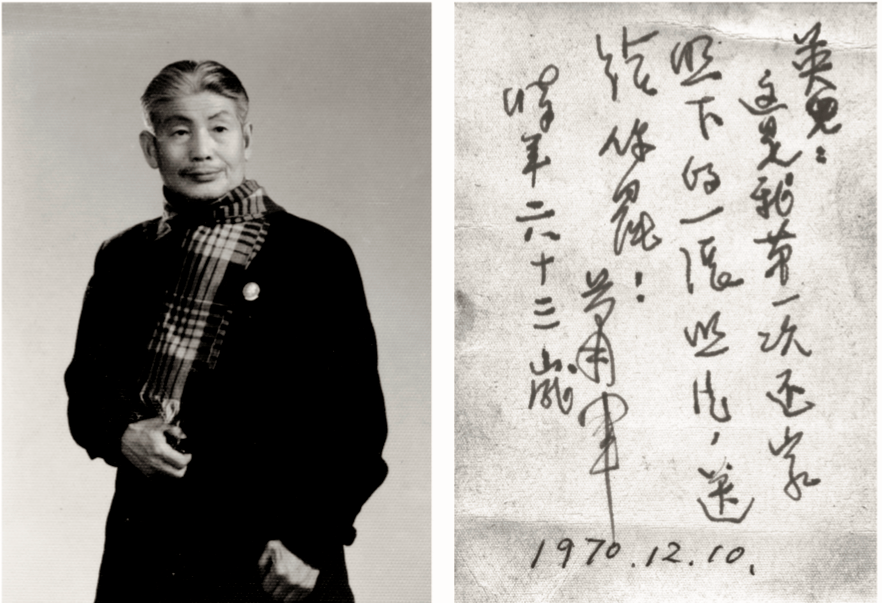 英儿：
这是我第一次还家
照下的一张照片，送
给你罢！
萧军
时年六十三岁
1970.12.10.